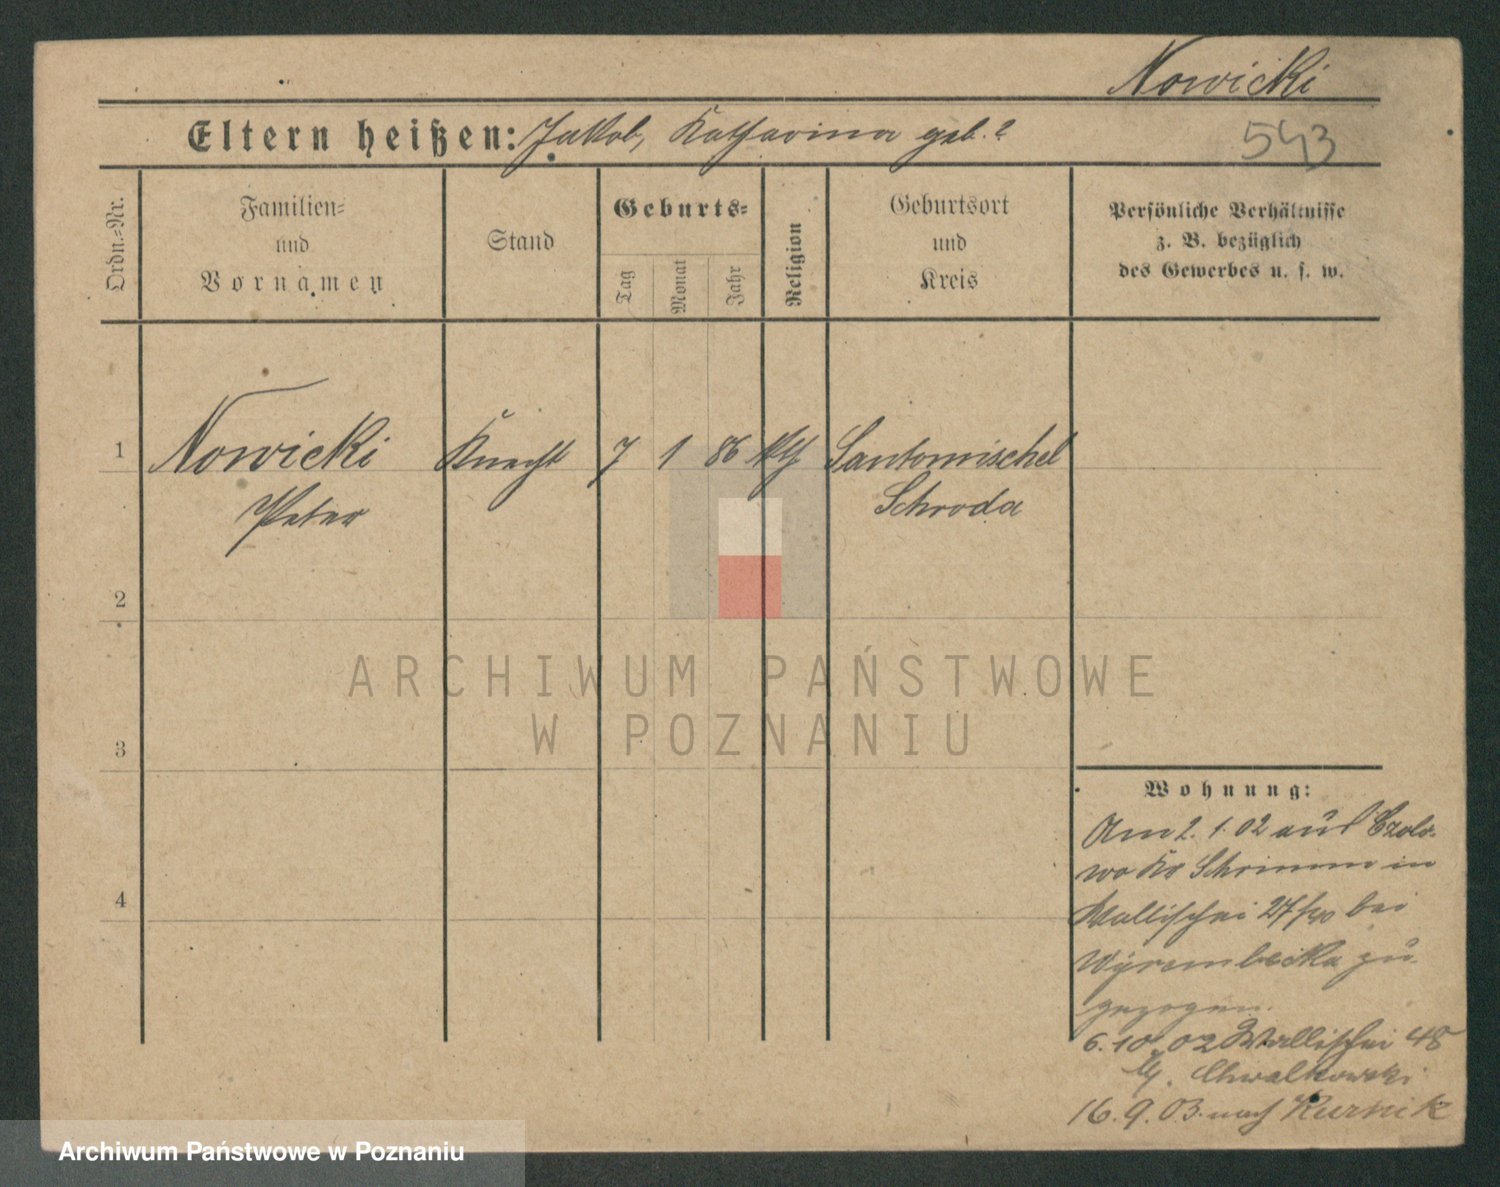 Nowicki
Eltern heißen: Jakob, Katharina geb. ?
543
Ordn.=Nr.
Familien=
und
Vornamen
Stand
Geburts=
Tag
Monat
Jahr
Religion
Geburtsort
und
Kreis
Persönliche Verhältnisse
z. B. bezüglich
des Gewerbes u. s. w.
1
Nowicki Knecht 7 1 86 kth Santomischel
Peter Schroda
2
ARCHIWUM PAŃSTWOWE
W POZNANIU
3
Wohnung:
Am 2. 1. 02 aus Czolo-
wo Kr Schrimm in
4
Wallischei 27/ bei
Wyrembecka zu-
gezogen.
6. 10. 02 Wallischei 48
b/. Chwalkowski
16. 9. 03. nach Kurnik
Archiwum Państwowe w Poznaniu